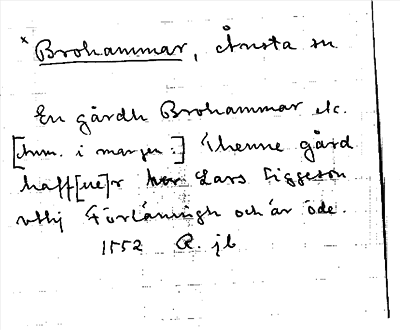 * Brohammar, Årsta sn
En gårdh Brohammar etc.
[Anm. i margen:] Thenne gård
haff[ue]r Lars Siggeson
vthj Förlänningh och är öde.
1552 R. jb